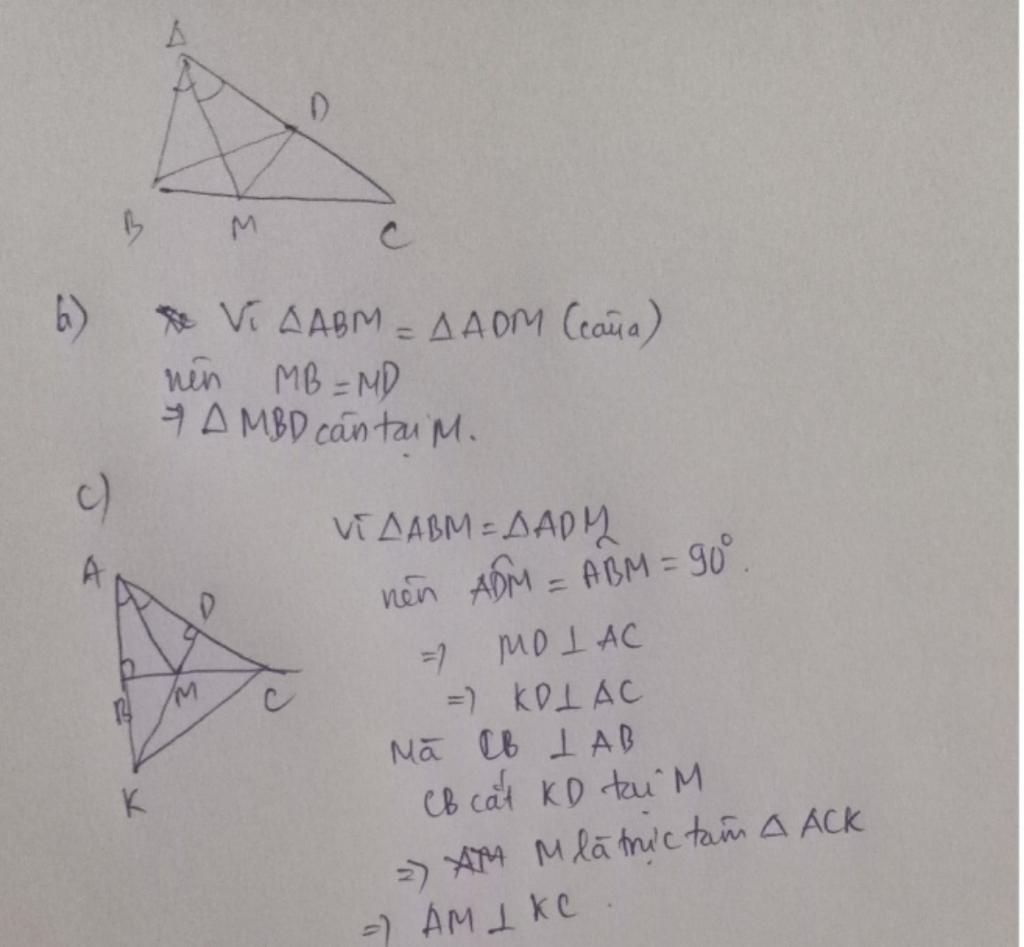 A
D
B M C
b) Vì △ABM = △ADM (câu a)
nên MB = MD
⇒ △MBD cân tại M.
c)
Vì △ABM = △ADM
nên ADM̂ = ABM̂ = 90°.
⇒ MD ⊥ AC
⇒ KD ⊥ AC
Mà CB ⊥ AB
CB cắt KD tại M
⇒ M là trực tâm △ ACK
⇒ AM ⊥ KC.
A
D
B M C
K